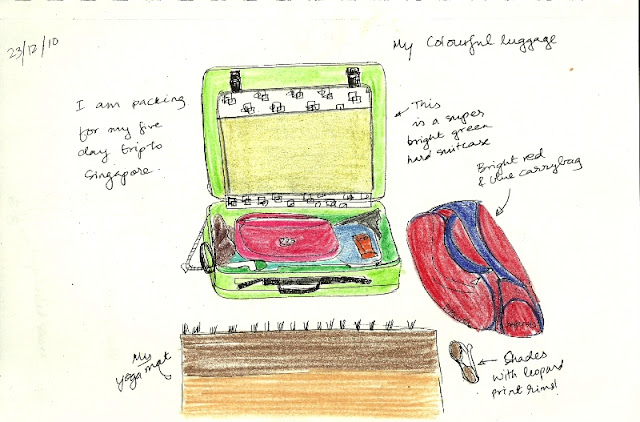 23/12/10
My Colourful luggage
I am packing
for my five
day trip to
Singapore.
This
is a super
bright green
hard suitcase
Bright red
& blue carrybag
My
yoga mat
Shades
with leopard
print rims!